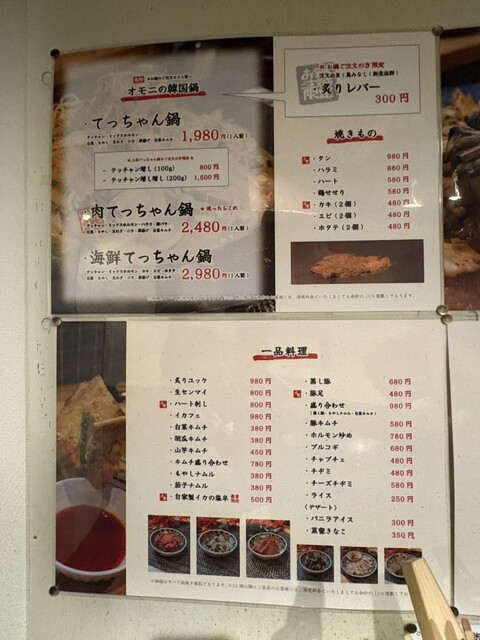 オモニの韓国鍋
・てっちゃん鍋
1,980円(1人前)
- テッチャン増し(100g) 800円
- テッチャン増し(200g) 1,500円
・肉てっちゃん鍋 ★迷ったらこれ
2,480円(1人前)
・海鮮てっちゃん鍋
2,980円(1人前)
お鍋ご注文の方限定
・炙りレバー
300円
焼きもの
・タン 980円
・ハラミ 880円
・ハート 580円
・鶏せせり 580円
・カキ(2個) 480円
・エビ(2個) 480円
・ホタテ(2個) 480円
一品料理
・炙りユッケ 980円
・生センマイ 800円
・ハート刺し 800円
・イカフェ 980円
・白菜キムチ 380円
・胡瓜キムチ 380円
・山芋キムチ 450円
・キムチ盛り合わせ 780円
・もやしナムル 380円
・茄子ナムル 380円
・自家製イカの塩辛 数量限定 500円
・蒸し豚 680円
・豚足 480円
・盛り合わせ 980円
(蒸し豚・もやしナムル・白菜キムチ)
・豚キムチ 580円
・ホルモン炒め 780円
・プルコギ 680円
・チャプチェ 480円
・チヂミ 480円
・チーズチヂミ 580円
・ライス 250円
〈デザート〉
・バニラアイス 300円
・黒蜜きなこ 350円